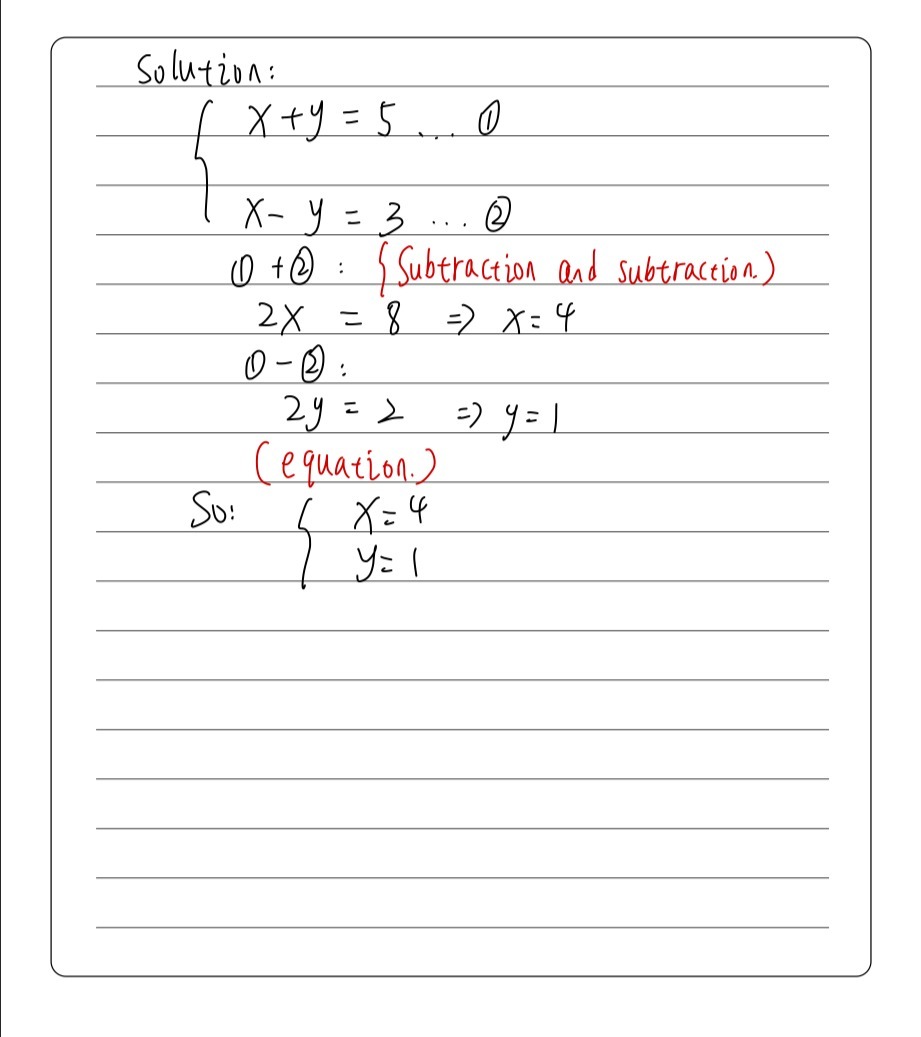 Solution:
x+y=5 ... ①
x-y=3 ... ②
①+②: {Subtraction and subtraction.)
2x=8 => x=4
①-②:
2y=2 => y=1
(equation.)
So: { x=4
y=1